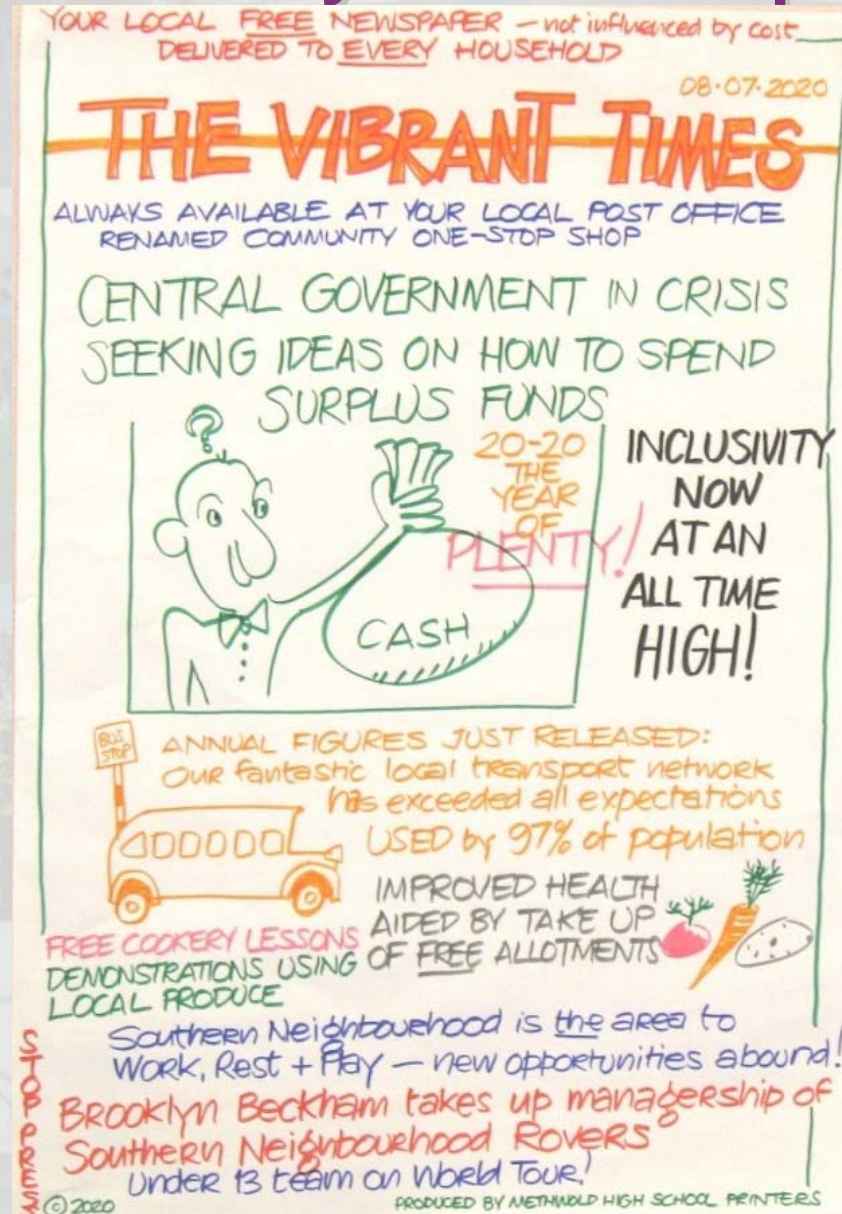 YOUR LOCAL FREE NEWSPAPER – not influenced by cost
DELIVERED TO EVERY HOUSEHOLD
08·07·2020
THE VIBRANT TIMES
ALWAYS AVAILABLE AT YOUR LOCAL POST OFFICE
RENAMED COMMUNITY ONE-STOP SHOP
CENTRAL GOVERNMENT IN CRISIS
SEEKING IDEAS ON HOW TO SPEND
SURPLUS FUNDS
?
20-20
THE
YEAR
OF
PLENTY!
CASH
INCLUSIVITY
NOW
AT AN
ALL TIME
HIGH!
BUS
STOP
ANNUAL FIGURES JUST RELEASED:
Our fantastic local transport network
has exceeded all expectations
USED by 97% of population
IMPROVED HEALTH
AIDED BY TAKE UP
OF FREE ALLOTMENTS
FREE COOKERY LESSONS
DEMONSTRATIONS USING
LOCAL PRODUCE
Southern Neighbourhood is the area to
Work, Rest + Play – new opportunities abound!
STOP PRESS
Brooklyn Beckham takes up managership of
Southern Neighbourhood Rovers
Under 13 team on World Tour!
© 2020
PRODUCED BY METHWOLD HIGH SCHOOL PRINTERS